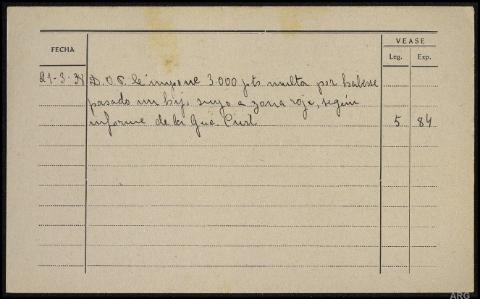 VEASE
FECHA
Leg. Exp.
21-3-38 D.O.P. le impone 3.000 pts multa por haberse
pasado un hijo suyo a zona roja, según
informe de la Gua. Civil 5 84
ARG